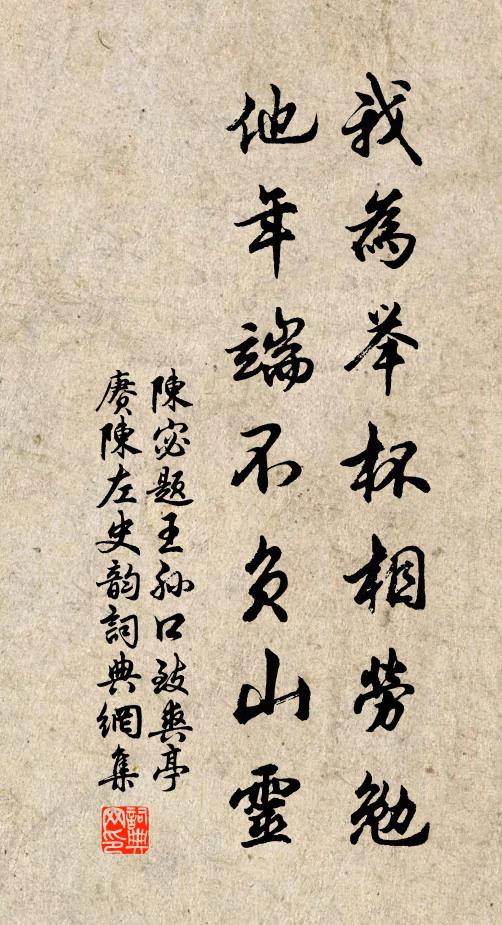 我為举杯相勞勉
他年端不負山靈
陳宓題王孙口致爽亭
賡陳左史韵詞典網集
詞典网印